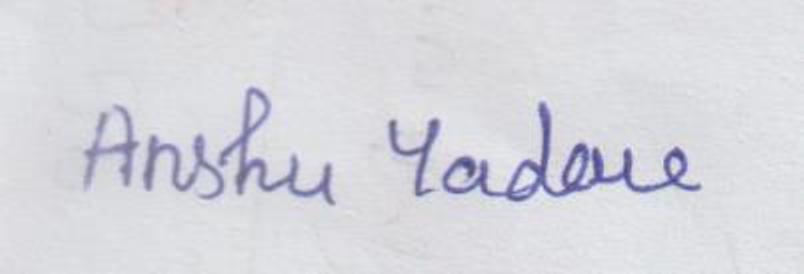 Anshu Yadave